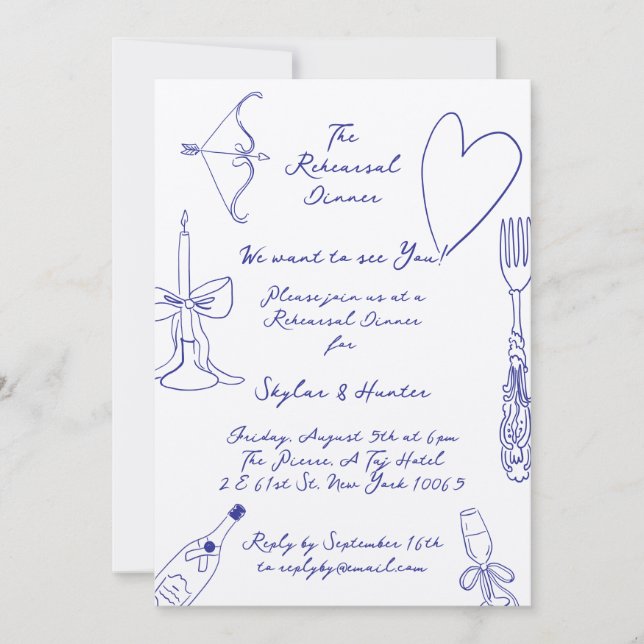 The
Rehearsal
Dinner
We want to see You!
Please join us at a
Rehearsal Dinner
for
Skylar & Hunter
Friday, August 5th at 6pm
The Pierre, A Taj Hotel
2 E 61st St, New York 10065
Reply by September 16th
to replyby@email.com